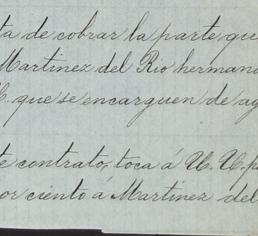 ta de cobrar la parte qu
Martinez del Rio herman
que se encarguen de ag
te contrato, toca á U. U. p
or ciento á Martinez del